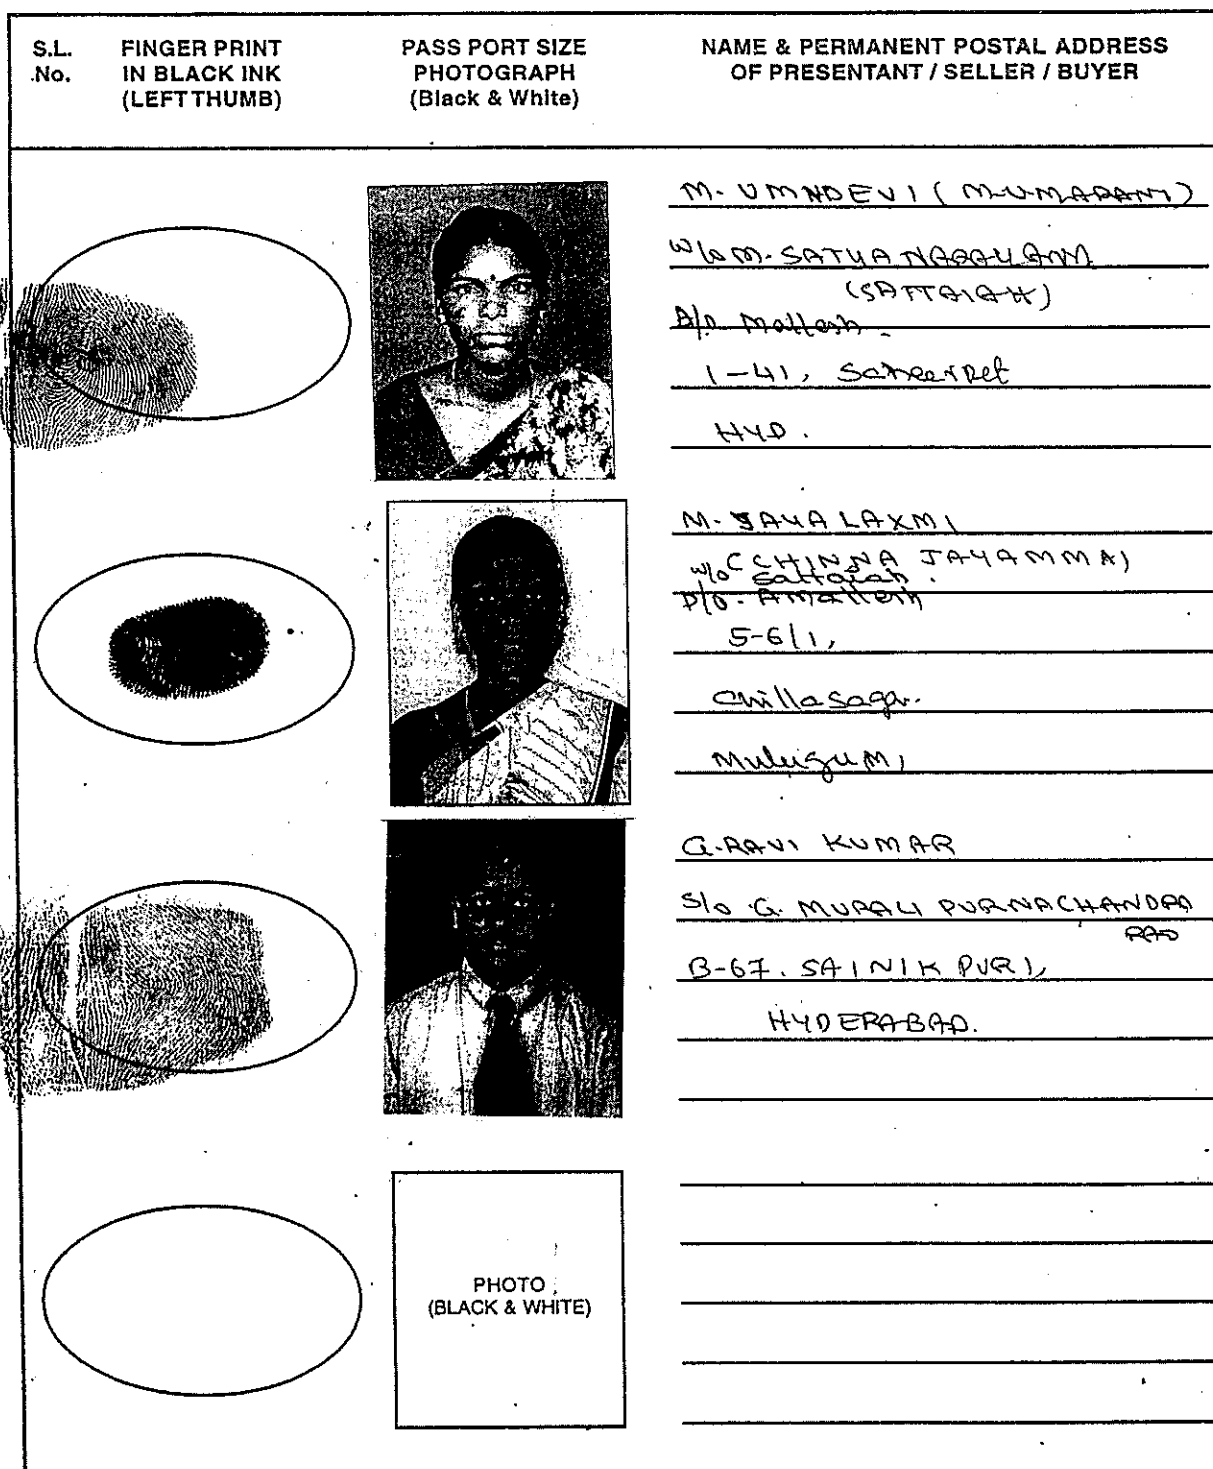 S.L.
No.
FINGER PRINT
IN BLACK INK
(LEFT THUMB)
PASS PORT SIZE
PHOTOGRAPH
(Black & White)
NAME & PERMANENT POSTAL ADDRESS
OF PRESENTANT / SELLER / BUYER
M. UMADEVI (M.UMARANI)
W/o M. SATYANARAYANA
(SATTAIAH)
D/o Mallesh
1-41,
HYD.
M. JAYA LAXMI
(CHINNA JAYAMMA)
W/o Sattaiah.
D/o.
5-6/1,
Chillasagar.
G. RAVI KUMAR
S/o G. MURALI PURNACHANDRA
RAO
B-67. SAINIKPURI,
HYDERABAD.
PHOTO
(BLACK & WHITE)